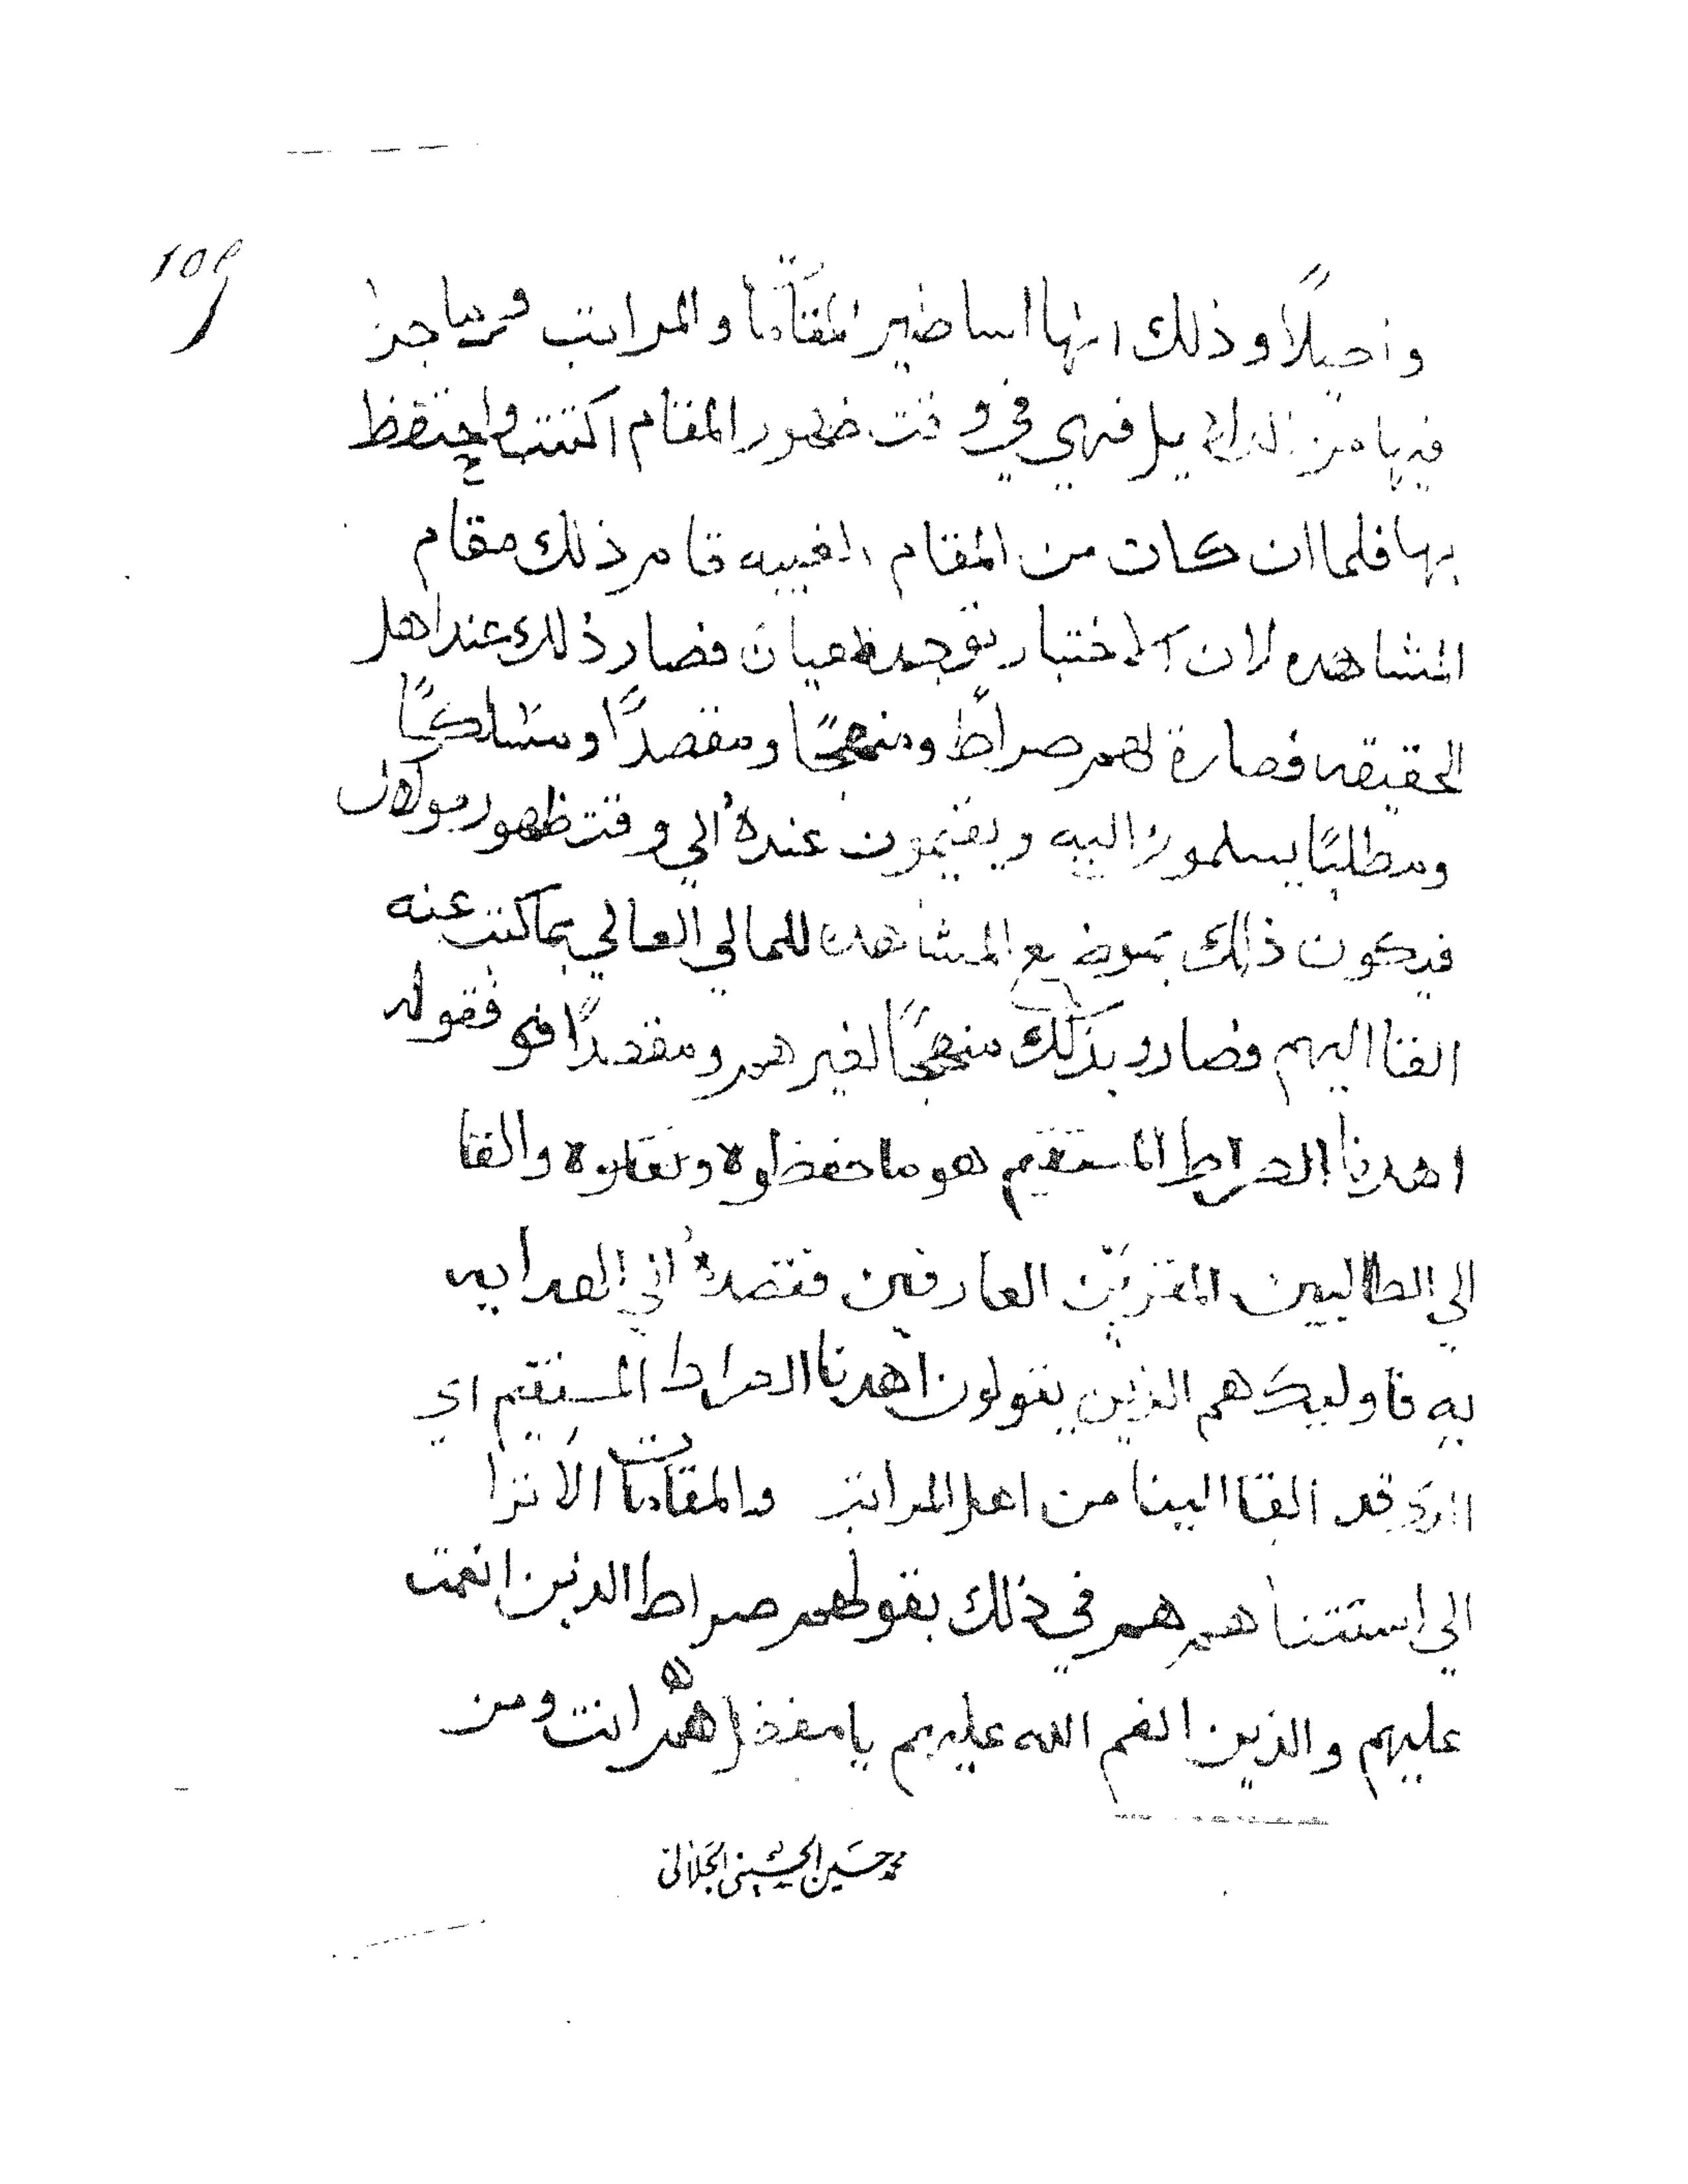 109
واصلًا وذلك انها اساطير المقامات والمراتب وما جرا
فيها من فهي في وقت ظهور المقام اكتتب واحتفظ
بها فلما ان كان من المقام الغيبه قام ذلك مقام
المشاهده لان الاختبار عيان فصار ذلك عند اهل
الحقيقه فصارة لهم صراطً ومنهجًا ومقصدًا ومسلكًا
ومطلبًا يسلمون اليه ويقيمون عندهُ الي وقت ظهور مولاك
فيكون ذالك بموضع المشاهده للمالي العالي بما كتب عنه
القا اليهم فصارو بذلك منهجًا لغيرهم ومقصدًا فقوله
اهدنا الصراط المستقيم هو ما حفظوة والقا
الي الطالبين المقربين العارفين فقصدهُ الهدايه
به فاوليك هم الذين يقولون اهدنا الصراط المستقيم اي
قد القا الينا من اعلا المراتب والمقامات الا ترا
الي استثناهم هم في ذلك بقولهم صراط الذين انعمت
عليهم والذين انعم الله عليهم يا مفضل هم انت ومن
محمد حسين الحسيني الجلالي